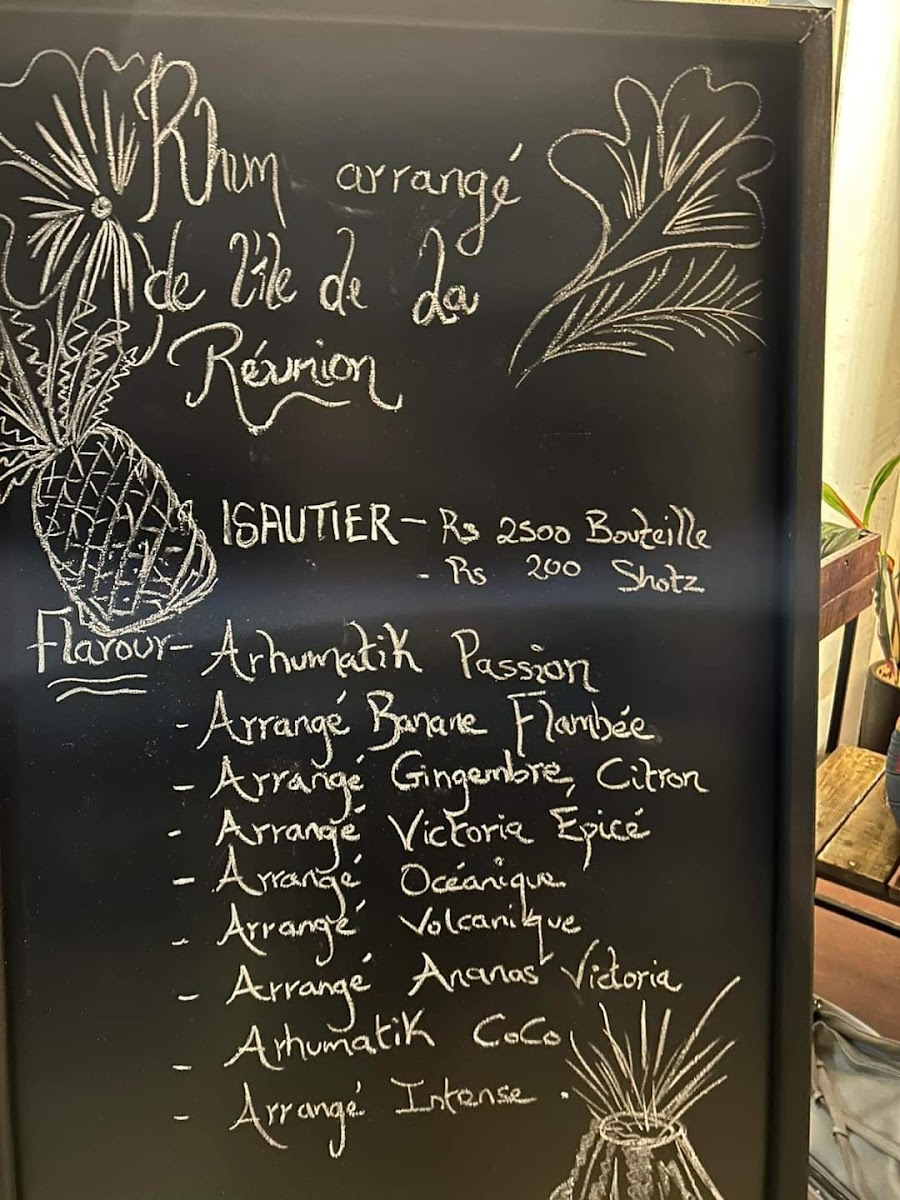 Rhum arrangé
de l'île de La
Réunion
ISAUTIER - Rs 2500 Bouteille
- Rs 200 Shotz
Flavour - Arhumatik Passion
- Arrangé Banane Flambée
- Arrangé Gingembre, Citron
- Arrangé Victoria Épicé
- Arrangé Océanique
- Arrangé Volcanique
- Arrangé Ananas Victoria
- Arhumatik CoCo
- Arrangé Intense.